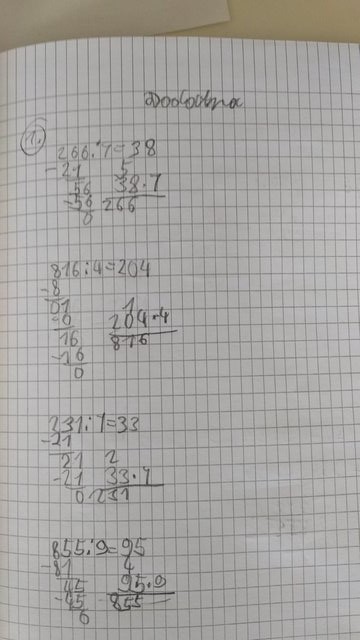 1.
266:7=38
-21 5
56 38·7
-56 266
0
816:4=204
-8
01 1
-0 204·4
16 816
-16
0
231:7=33
-21
21 2
-21 33·7
0 231
855:9=95
-81 4
45 95·9
-45 855
0